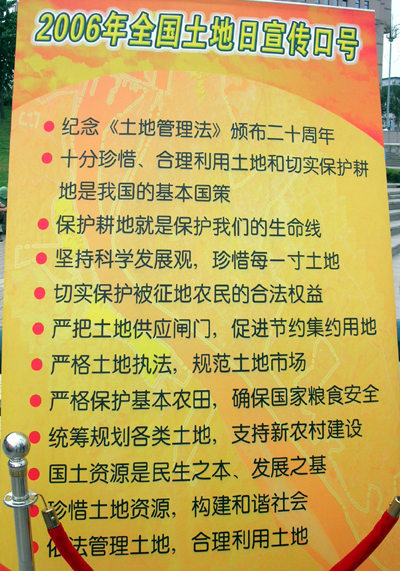 2006年全国土地日宣传口号
纪念《土地管理法》颁布二十周年
十分珍惜、合理利用土地和切实保护耕
地是我国的基本国策
保护耕地就是保护我们的生命线
坚持科学发展观，珍惜每一寸土地
切实保护被征地农民的合法权益
严把土地供应闸门，促进节约集约用地
严格土地执法，规范土地市场
严格保护基本农田，确保国家粮食安全
统筹规划各类土地，支持新农村建设
国土资源是民生之本、发展之基
珍惜土地资源，构建和谐社会
依法管理土地，合理利用土地